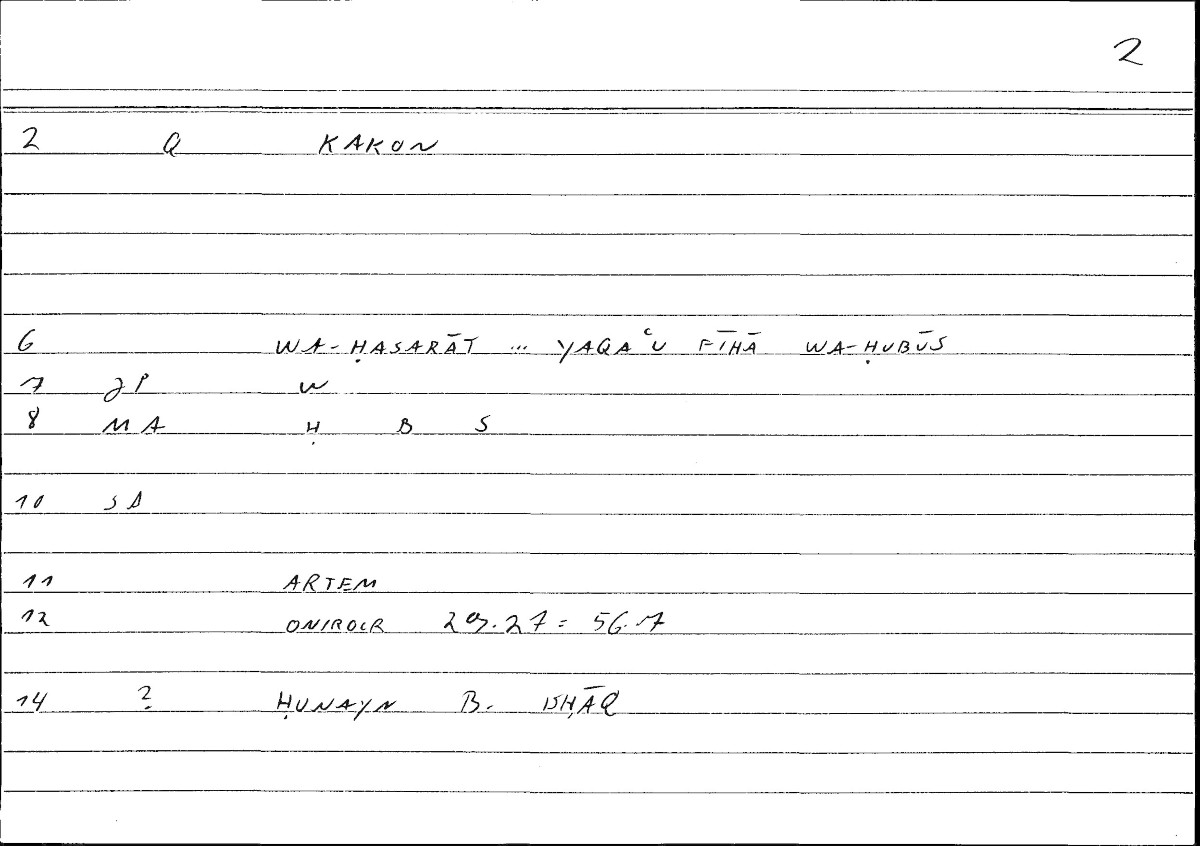 2
2 Q KAKON
6 WA-ḤASARĀT ... YAQAʿU FĪHĀ WA-ḤUBŪS
7 JP W
8 MA Ḥ B S
10 SA
11 ARTEM
12 ONIROCR 29.27 = 56.7
14 ? ḤUNAYN B. ISḤĀQ